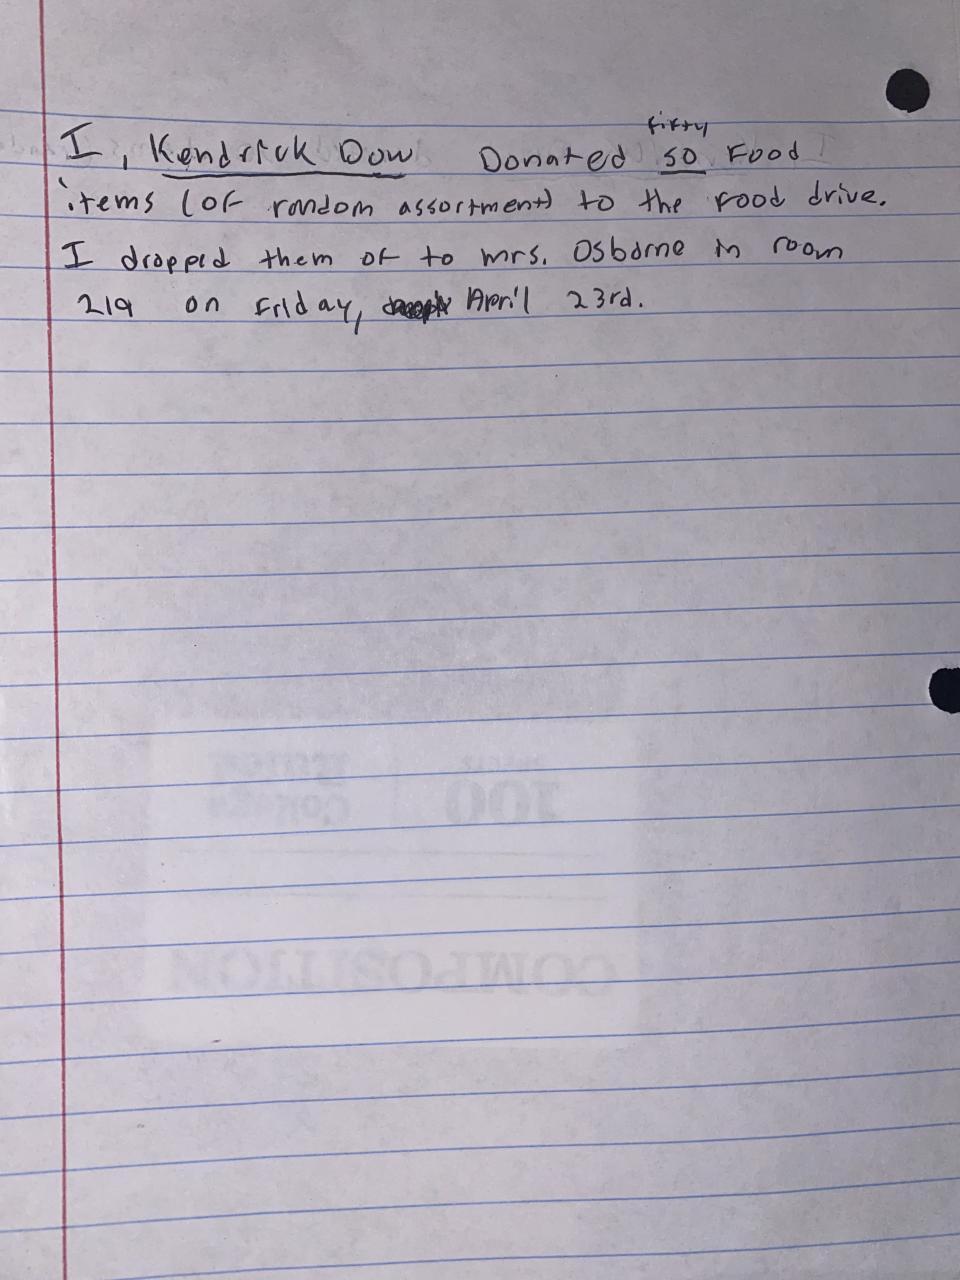 I, Kendrick Dow Donated fifty 50 Food
items (of random assortment) to the food drive.
I dropped them of to mrs. Osborne in room
219 on Friday, April 23rd.
100 SHEETS
College Ruled
COMPOSITION